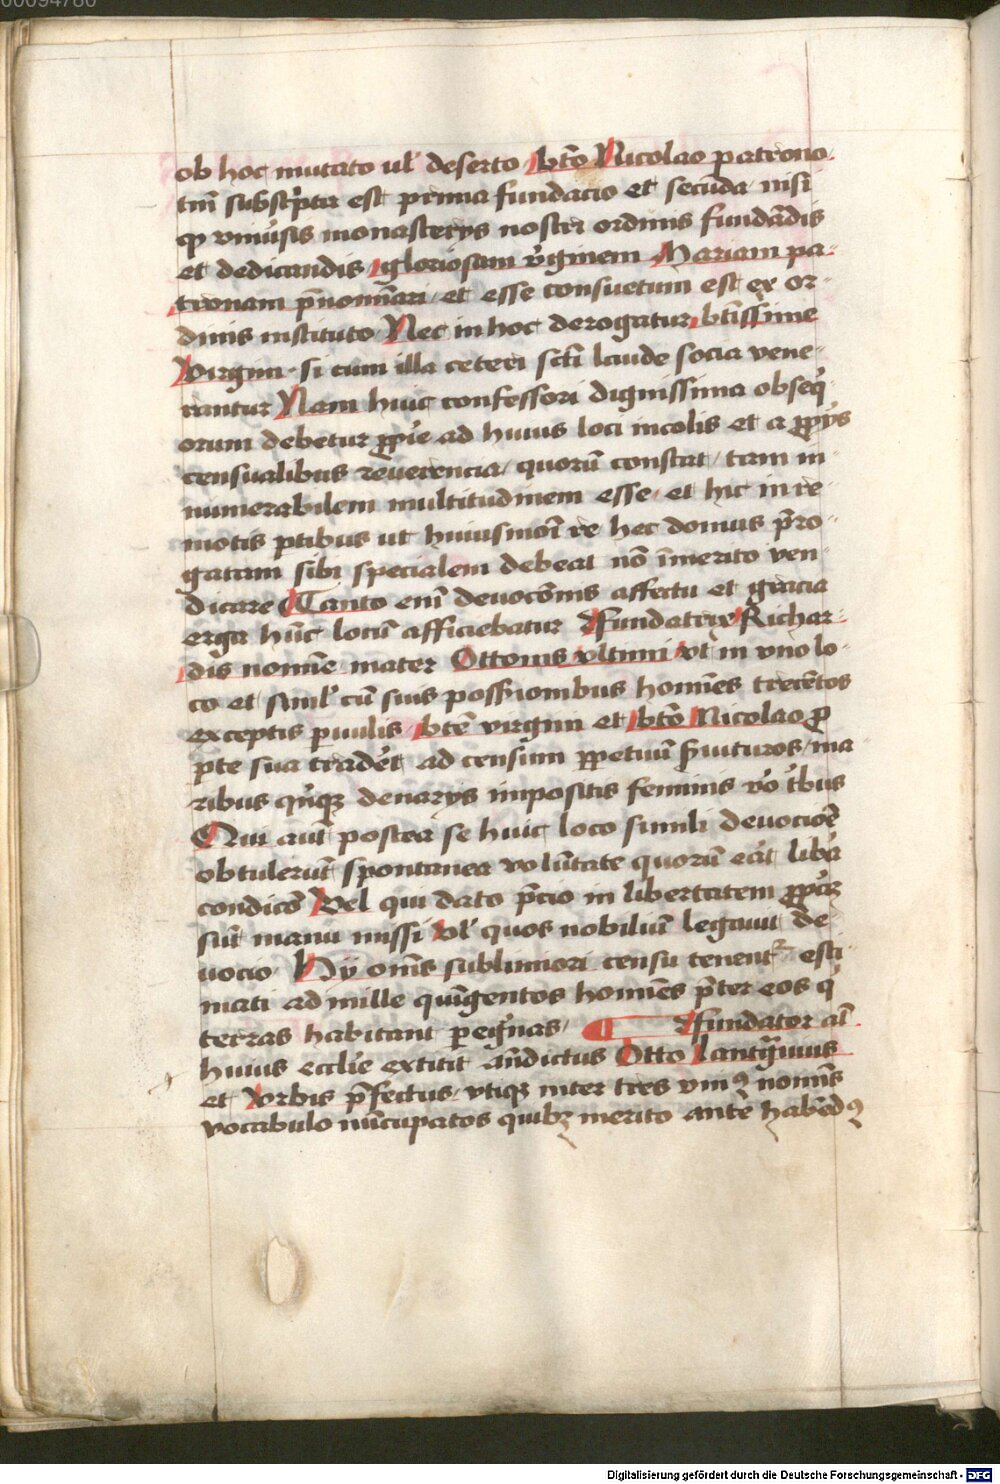 00094780
ob hoc mutato ul' deserto bt̄o Nicolao patrono
tm̄ subscpta est prima fundacio et secūda nisi
qꝫ vniūsis monasterys nostri ordinis fundādis
et dedicandis gloriosam v̄ginem Mariam pa-
tronam p̄nomīari et esse consuetum est ex or-
dinis instituto Nec in hoc derogatur bt̄issime
Virgini si cum illa ceteri sct̄i laude socia vene-
rantur Nam huic confessori dignissima obseq'-
orum debetur ꝓpie ad huius loci incolis et a ꝓpys
censualibus reuerencia quorū constat tam in-
numerabilem multitudinem esse et hic in re-
motis ptibus ut huiusmōi re hec domus p̄ro-
gatam sibi specialem debeat nō īmerito ven-
dicare Tanto enī deuocōnis affectu et gracia
erga hūc locū afficiebatur Fundatrix Richar-
dis nomīe mater Ottonis vltimi vt in vno lo-
co et simł cū suis possīonibus homīes trecētos
exceptis puulis bt̄e virgini et bt̄o Nicolao ꝓ
pte sua tradēt ad censum ꝑpetuū s̄uituros ma-
ribus qnqꝫ denarys impositis feminis v̄o t̄bus
Qui aut̄ postea se huic loco simili deuocioē
obtulerūt spontanea volūtate quorū eāt libā
condicō Vel qui dato p̄cio in libertatem
sūt manu missi Vl' quos nobiliū legauit de-
uocio Hy om̄s sublimiori censu tenent᷑ esti-
mati ad mille qūigentos homīes p̄ter eos q'
terras habitant peginas Fundator aūt
huius ecclīe extitit andictus Otto Lantgͣuius
et Vrbis p̄fectus vtiqꝫ inter tres vniꝰ nomīs
vocabulo nūcupatos quibꝫ merito ante habēdꝰ
Digitalisierung gefördert durch die Deutsche Forschungsgemeinschaft - DFG